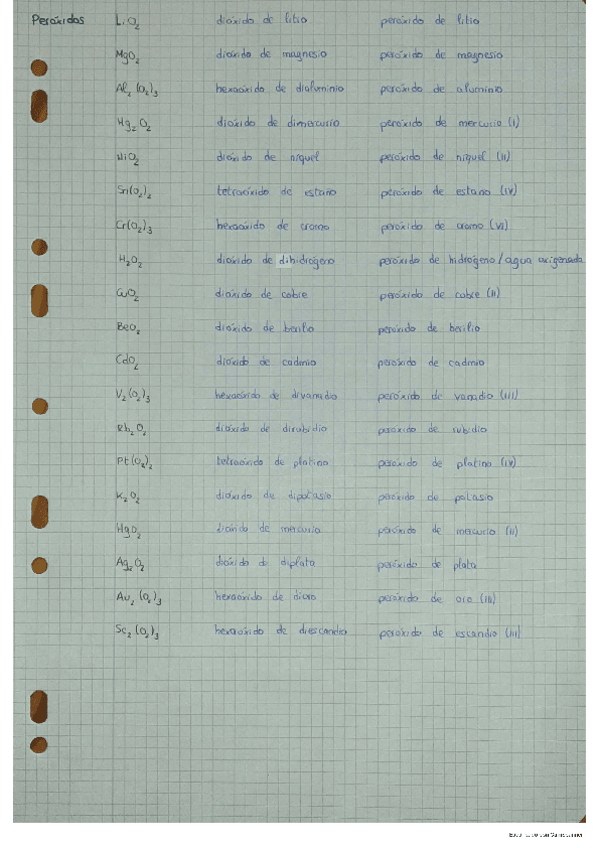 Peróxidos LiO2 dióxido de litio peróxido de litio
MgO2 dióxido de magnesio peróxido de magnesio
Al2(O2)3 hexaóxido de dialuminio peróxido de aluminio
Hg2O2 dióxido de dimercurio peróxido de mercurio (I)
NiO2 dióxido de níquel peróxido de níquel (II)
Sn(O2)2 tetraóxido de estaño peróxido de estaño (IV)
Cr(O2)3 hexaóxido de cromo peróxido de cromo (VI)
H2O2 dióxido de dihidrógeno peróxido de hidrógeno/agua oxigenada
CuO2 dióxido de cobre peróxido de cobre (II)
BeO2 dióxido de berilio peróxido de berilio
CdO2 dióxido de cadmio peróxido de cadmio
V2(O2)3 hexaóxido de divanadio peróxido de vanadio (III)
Rb2O2 dióxido de dirubidio peróxido de rubidio
Pt(O2)2 tetraóxido de platino peróxido de platino (IV)
K2O2 dióxido de dipotasio peróxido de potasio
HgO2 dióxido de mercurio peróxido de mercurio (II)
Ag2O2 dióxido de diplata peróxido de plata
Au2(O2)3 hexaóxido de dioro peróxido de oro (III)
Sc2(O2)3 hexaóxido de diescandio peróxido de escandio (III)